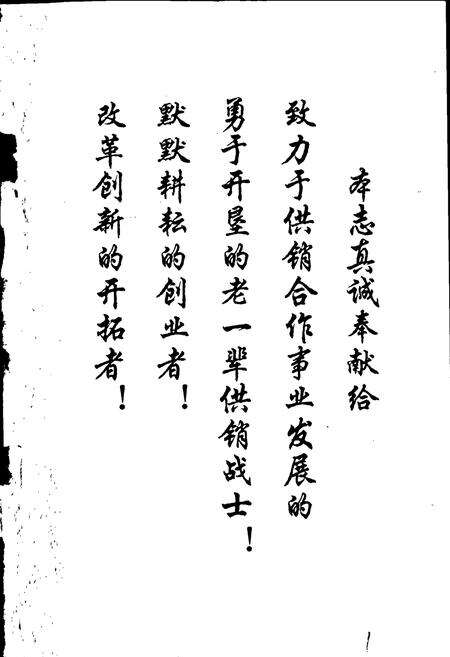 本志真诚奉献给
致力于供销合作事业发展的
勇于开垦的老一辈供销战士！
默默耕耘的创业者！
改革创新的开拓者！